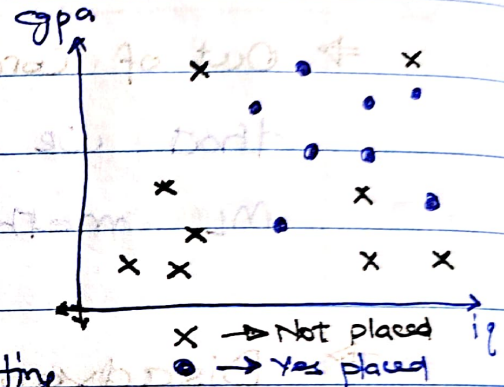 cgpa
iq
x → Not placed
• → Yes placed